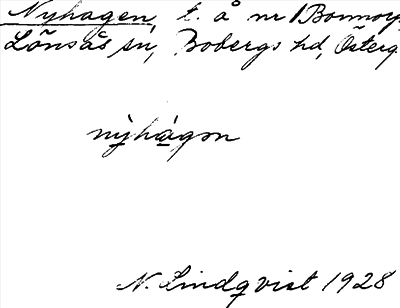 Nyhagen, t. å nr 1 Bonnorp
Lönsås sn, Bobergs hd, Österg
nỳhágən
N. Lindqvist 1928